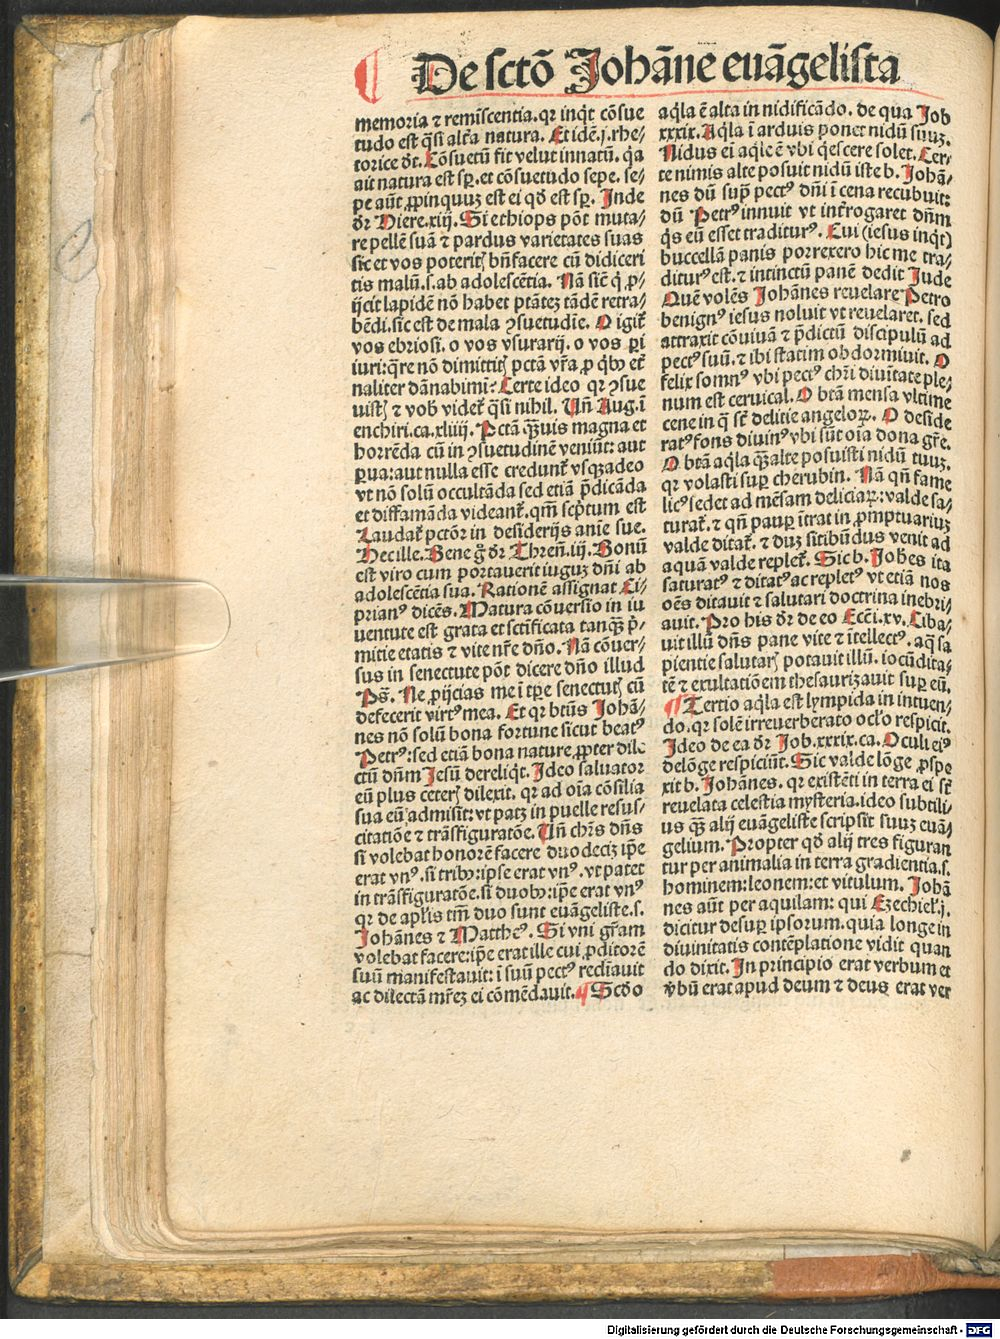 De sctō Johāne euāgelista
memoria ⁊ remīscentia. qr inq̇t cōsue
tudo est q̄si alt̄a natura. Et idē. j. rhe-
torice d̄r. Cōsuetū fit velut innatū. q̇a
ait natura est sꝑ. et cōsuetudo sepe. se-
pe aūt ꝓpinquuꝫ est ei qd̄ est sꝑ. Inde
d̄r Hiere. xiij. Si ethiops pōt muta-
re pellē suā ⁊ pardus varietates suas
sic et vos poteritꝭ bn̄facere cū didiceri
tis malū. s. ab adolescētia. Nā sic̄ q̇ ꝓ-
ijcit lapidē nō habet ptātez tādē retra-
hēdi. sic est de mala ꝯsuetudīe. O igit᷑
vos ebriosi. o vos vsurarij. o vos ꝑi
iuri: q̄re nō dimittitꝭ pctā vr̄a. ꝓ qb᷒ et᷑
naliter dānabimi? Certe ideo qr ꝯsue
uistꝭ ⁊ vob̄ videt᷑ q̄si nihil. Vn̄ Aug. ī
enchiri. ca. xliiij. Pctā q̄ꝫuis magna et
horrēda cū in ꝯsuetudinē veniūt: aut
ꝑua: aut nulla esse credunt᷑ vsqꝫadeo
vt nō solū occultāda sed etiā p̄dicāda
et diffamāda videant᷑. qm̄ scp̄tum est
Laudat᷑ pctōr in desiderijs anie sue.
Hec ille. Bene g̊ d̄r Thren̄. iij. Bonū
est viro cum portauerit iuguꝫ dn̄i ab
adolescētia sua. Rationē assignat Ci-
prianꝰ dicēs. Matura cōuersio in iu
uentute est grata et sctīficata tanqꝫ p̄-
mitie etatis ⁊ vite nr̄e dn̄o. Nā cōuer-
sus in senectute pōt dicere dn̄o illud
Ps̄. Ne ꝓijcias me ī tꝑe senectutꝭ cū
defecerit virtꝰ mea. Et qr btūs Johā-
nes nō solū bona fortune sicut beatꝰ
Petrꝰ: sed etiā bona nature ꝓpter dilc
ctū dn̄m Jesū dereliq̇t. Ideo saluator
eū plus ceterꝭ dilexit. qr ad oīa cōsilia
sua eū admisit: vt patꝫ in puelle resus-
citatiōe ⁊ trāsfiguratōe. Vn̄ chr̄s dn̄s
si volebat honorē facere duodeciꝫ ip̄e
erat vnꝰ. si tribꝰ: ipse erat vnꝰ. vt patet
in trāsfiguratōe. si duobꝰ: ip̄e erat vnꝰ
qr de apl̄is tm̄ duo sunt euāgeliste. s.
Johānes ⁊ Mattheꝰ. Si vni gr̄am
volebat facere: ip̄e erat ille cui ꝓditorē
suū manifestauit: ī suū pectꝰ recl̄iauit
ac dilectā mr̄eꝫ ei cōmēdauit. ¶ Scd̄o
aq̇la ē alta in nidificādo. de qua Job
xxxix. Aq̇la ī arduis ponet nidū suuꝫ.
Nidus ei aq̇le ē vbi q̇escere solet. Cer-
te nimis alte posuit nidū iste b. Johā-
nes dū supͣ pectꝰ dn̄i ī cena recubuit:
dū Petrꝰ innuit vt int̄rogaret dn̄m
q̇s eū esset traditurꝰ. Cui (iesus inq̇t)
buccellā panis porrexero hic me tra-
diturꝰ est. ⁊ intinctū panē dedit Jude
Quē volēs Johānes reuelare Petro
benignꝰ iesus noluit vt reuelaret. sed
attraxit cōuiuā ⁊ p̄dictū discipulū ad
pectꝰ suū. ⁊ ibi statim obdormiuit. O
felix somnꝰ vbi pectꝰ chr̄i diuītate ple-
num est ceruical. O btā mensa vltīme
cene in q̄ st̄ delitie angeloꝝ. O deside
ratꝰ fons diuinꝰ vbi sūt oīa dona gr̄e.
O btā aq̇la q̄ꝫ alte posuisti nidū tuuꝫ.
qr volasti suꝑ cherubin. Nā qn̄ fame
licꝰ sedet ad mēsam deliciaꝝ: valde sa-
turat᷑. ⁊ qn̄ pauꝑ īntrat in ꝓmptuariuꝫ
valde ditat᷑. ⁊ duꝫ sitibūdus venit ad
aquā valde replet᷑. Sic b. Joh̄es ita
saturatꝰ ⁊ ditatꝰ ac repletꝰ vt etiā nos
oēs ditauit ⁊ salutari doctrina inebri-
auit. Pro his d̄r de eo Ecc̄i. xv. Ciba-
uit illū dn̄s pane vite ⁊ ītellectꝰ. aq̄ sa
pientie salutarꝭ potauit illū. iocūdita-
tē ⁊ exultatiōem thesaurizauit suꝑ eū.
¶ Tertio aq̇la est lympida in intuen-
do. qr solē irreuerberato ocl̄o respicit.
Ideo de ea d̄r Job. xxxix. ca. Oculi eiꝰ
de lōge respiciūt. Sic valde lōge ꝓspe
xit b. Johānes. qr existēti in terra ei st̄
reuelata celestia mysteria. ideo subtili-
us q̄ꝫ alij euāgeliste scripsit suuꝫ euā-
gelium. Propter qd̄ alij tres figuran
tur per animalia in terra gradientia. s.
hominem: leonem: et vitulum. Johā
nes aūt per aquilam: qui Ezechiel̄. j.
dicitur desuꝑ ipsorum. quia longe in
diuinitatis contēplatione vidit quan
do dixit. In principio erat verbum et
v̄bū erat apud deum ⁊ deus erat ver
Digitalisierung gefördert durch die Deutsche Forschungsgemeinschaft - DFG